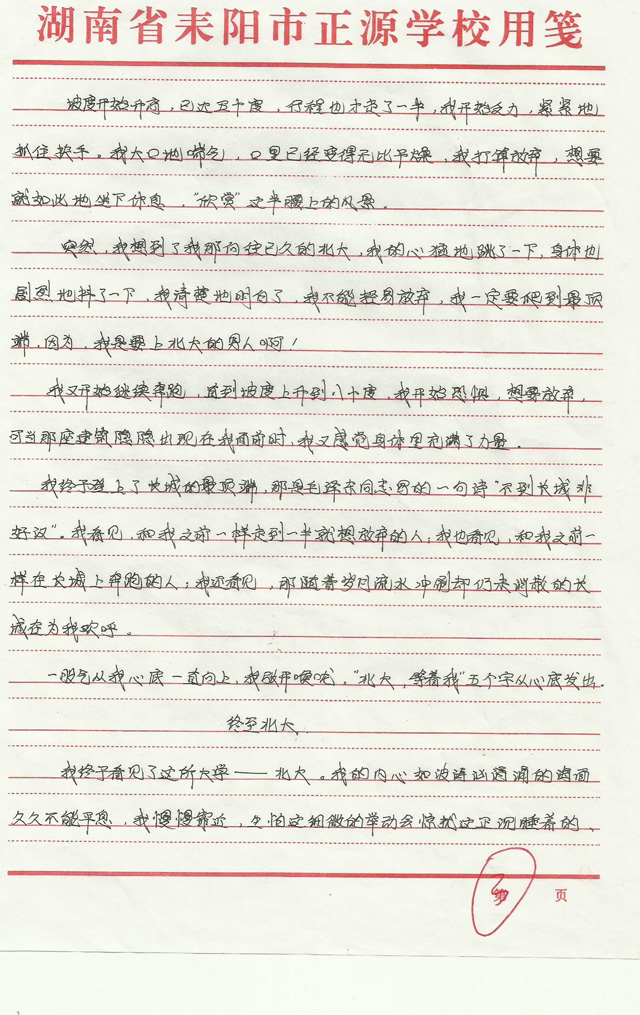 湖南省耒阳市正源学校用笺
坡度开始升高，已达五十度，行程也才走了一半，我开始乏力，紧紧地
抓住扶手。我大口地喘气，口里已经变得无比干燥，我打算放弃，想要
就如此地坐下休息，“欣赏”这半腰上的风景。
突然，我想到了我那向往已久的北大，我的心猛地跳了一下，身体也
剧烈地抖了一下，我清楚地明白了，我不能轻易放弃，我一定要爬到最顶
端，因为，我是要上北大的男人啊！
我又开始继续奔跑，直到坡度上升到八十度，我开始恐惧，想要放弃，
可当那座建筑隐隐出现在我面前时，我又感觉身体里充满了力量。
我终于登上了长城的最顶端，那是毛泽东同志写的一句诗“不到长城非
好汉”。我看见，和我之前一样走到一半就想放弃的人；我也看见，和我之前一
样在长城上奔跑的人；我还看见，那随着岁月流水冲刷却仍未消散的长
城在为我欢呼。
一股气从我心底一直向上，我敞开喉咙，“北大，等着我”五个字从心底发出。
终至北大
我终于看见了这所大学——北大。我的内心如波涛汹涌的海面
久久不能平息，我慢慢靠近，生怕这细微的举动会惊扰这正沉睡着的、
第 页